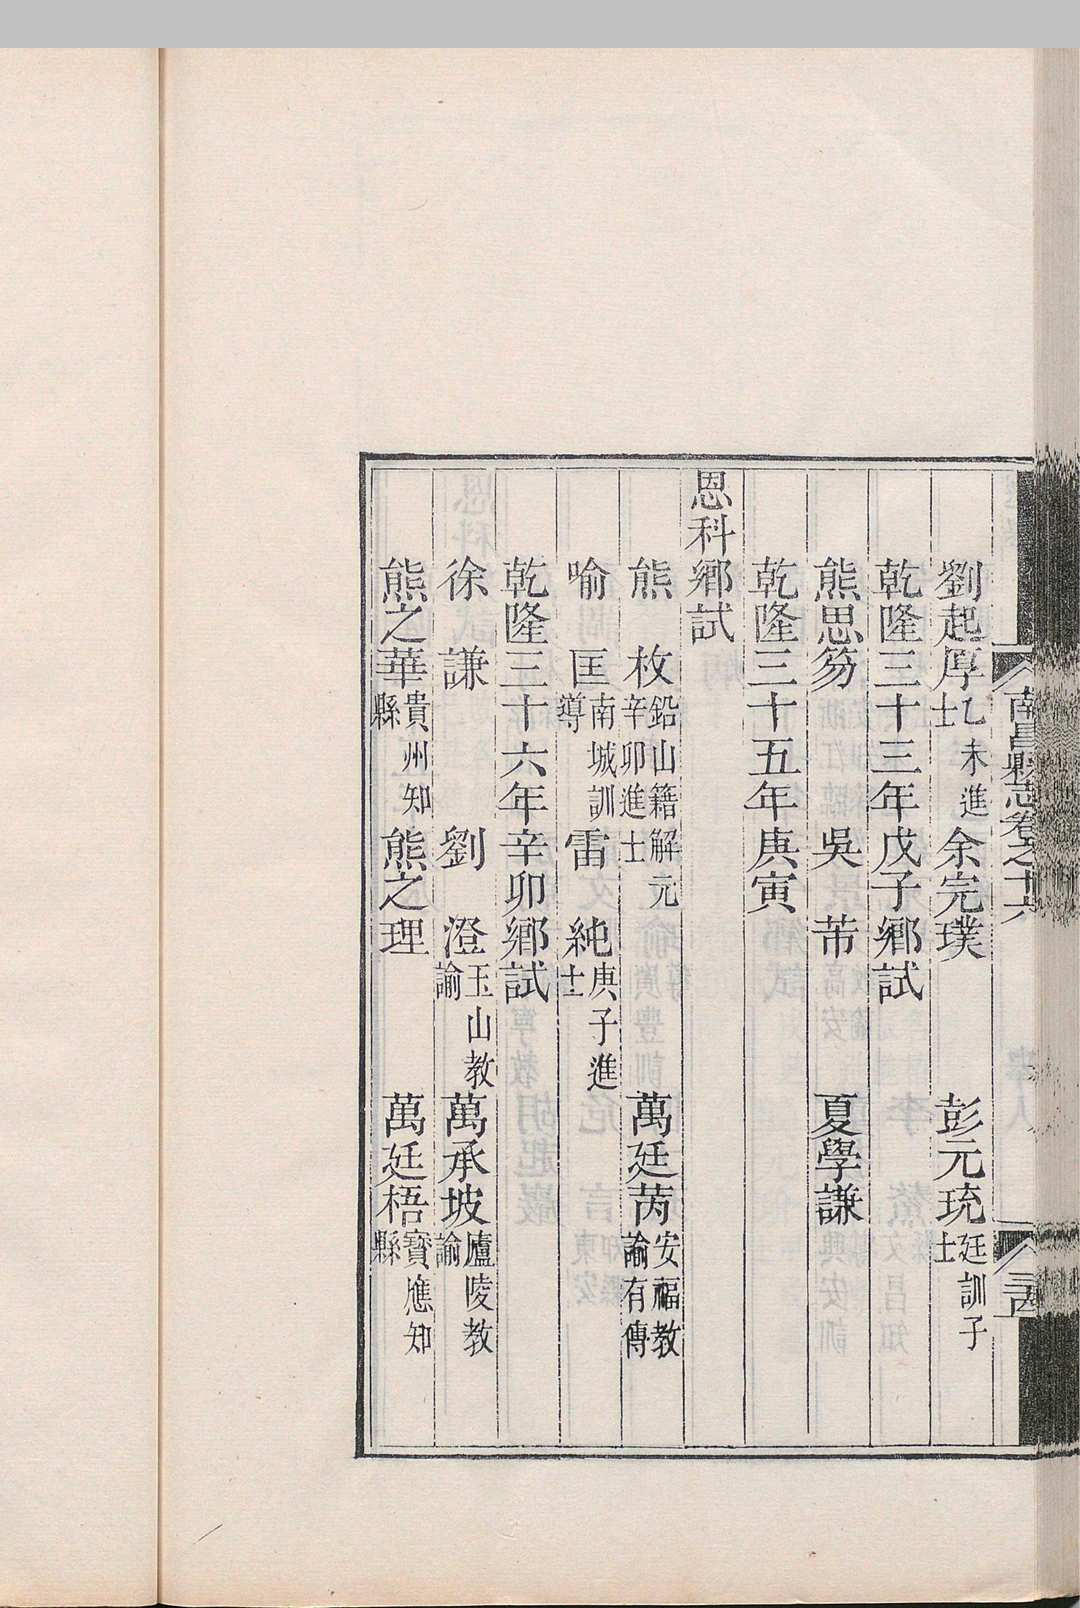 南昌縣志卷之十六　三四
劉起厚乙未進士　余完璞　彭元珫廷訓子士
乾隆三十三年戊子鄉試
熊思笏　吳芾　夏學謙
乾隆三十五年庚寅
恩科鄉試
熊枚鉛山籍解元辛卯進士　萬廷芮安福教諭有傳
喻匡南城訓導　雷純庚子進士
乾隆三十六年辛卯鄉試
徐謙　劉澄玉山教諭　萬承坡廬陵教諭
熊之華貴州知縣　熊之理　萬廷梧寶應知縣